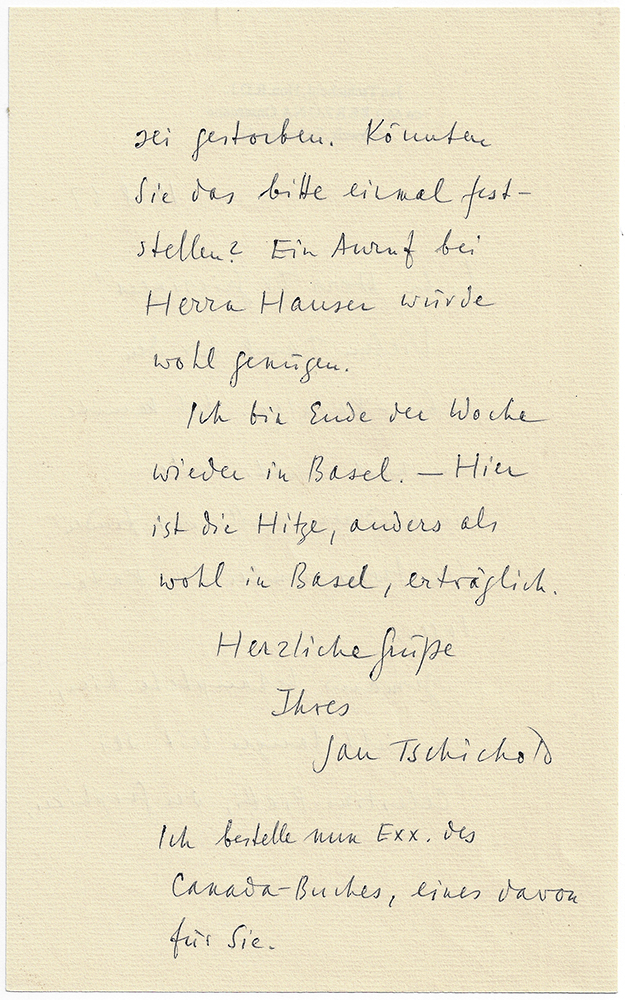 sei gestorben. Könnten
Sie das bitte einmal fest-
stellen? Ein Anruf bei
Herrn Hauser würde
wohl genügen.
Ich bin Ende der Woche
wieder in Basel. — Hier
ist die Hitze, anders als
wohl in Basel, erträglich.
Herzliche Grüße
Ihres
Jan Tschichold
Ich bestelle nun Exx. des
Canada-Buches, eines davon
für Sie.